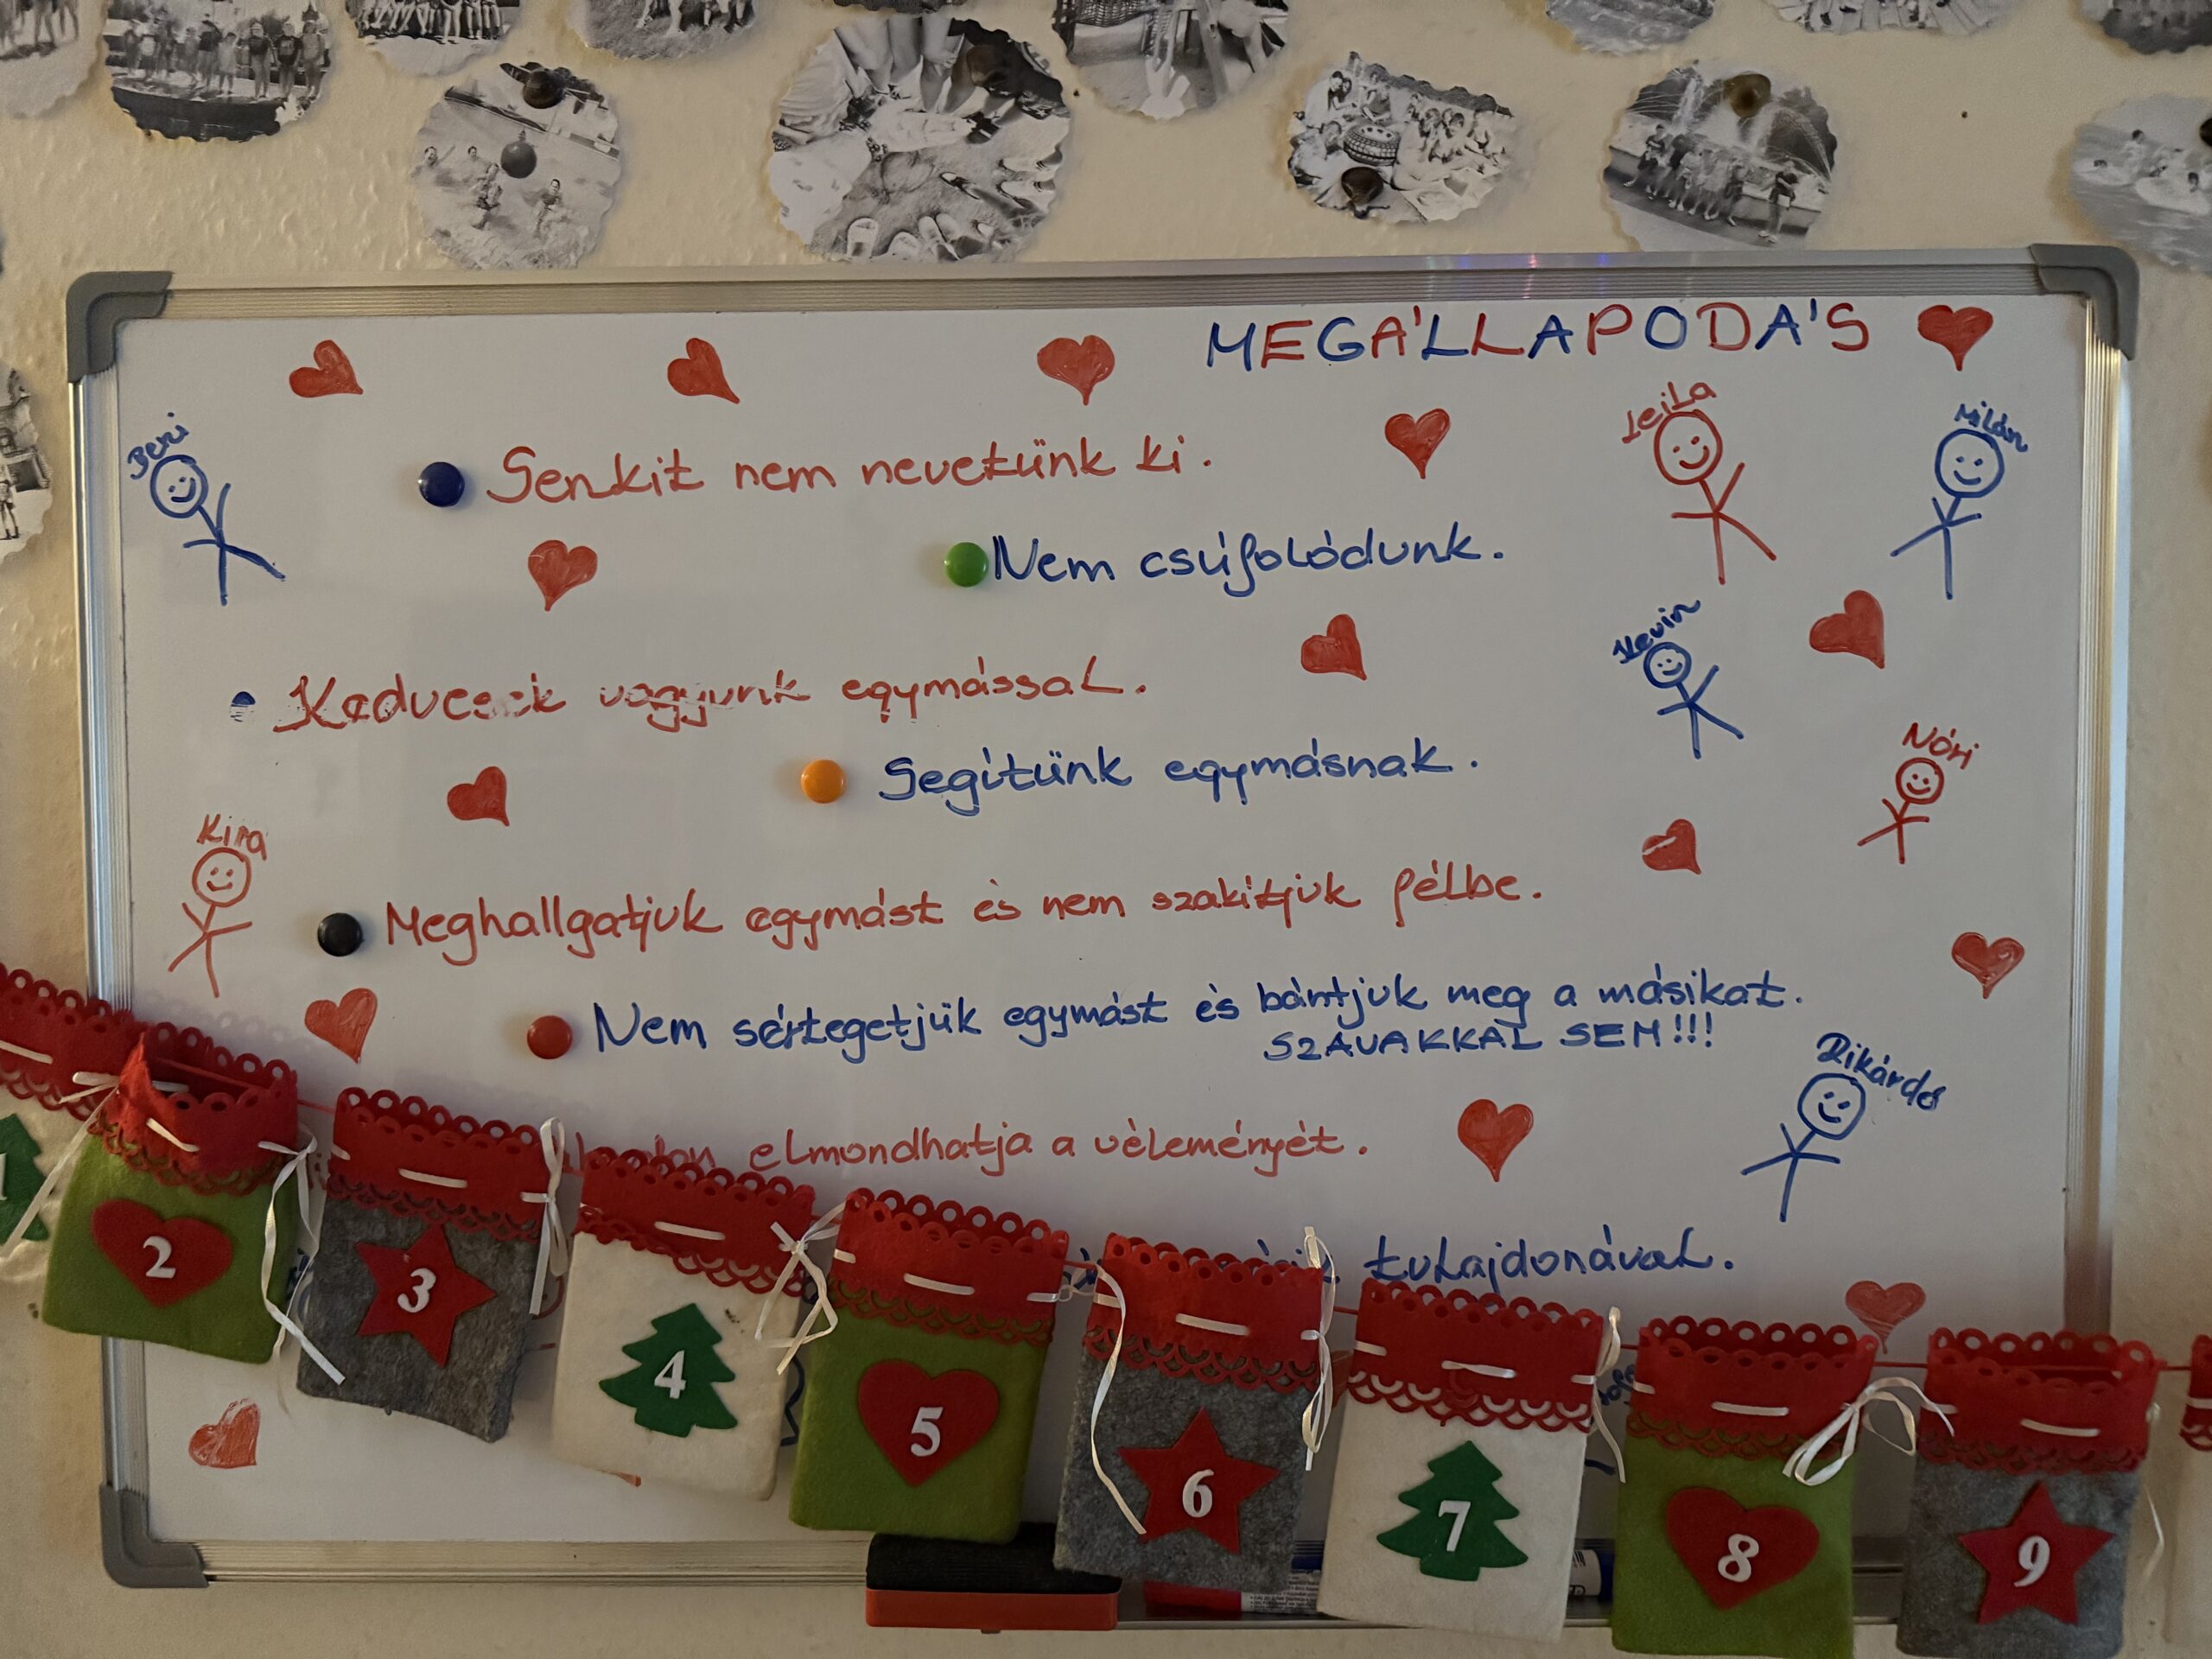 MEGÁLLAPODÁS
Beni
Leila
Milán
Senkit nem nevetünk ki.
Nem csúfolódunk.
Kevin
Kedvesek vagyunk egymással.
Nóri
Segítünk egymásnak.
Kira
Meghallgatjuk egymást és nem szakítjuk félbe.
Nem sértegetjük egymást és bántjuk meg a másikat.
SZAVAKKAL SEM!!!
Rikárdó
elmondhatja a véleményét.
tulajdonával.
1
2
3
4
5
6
7
8
9